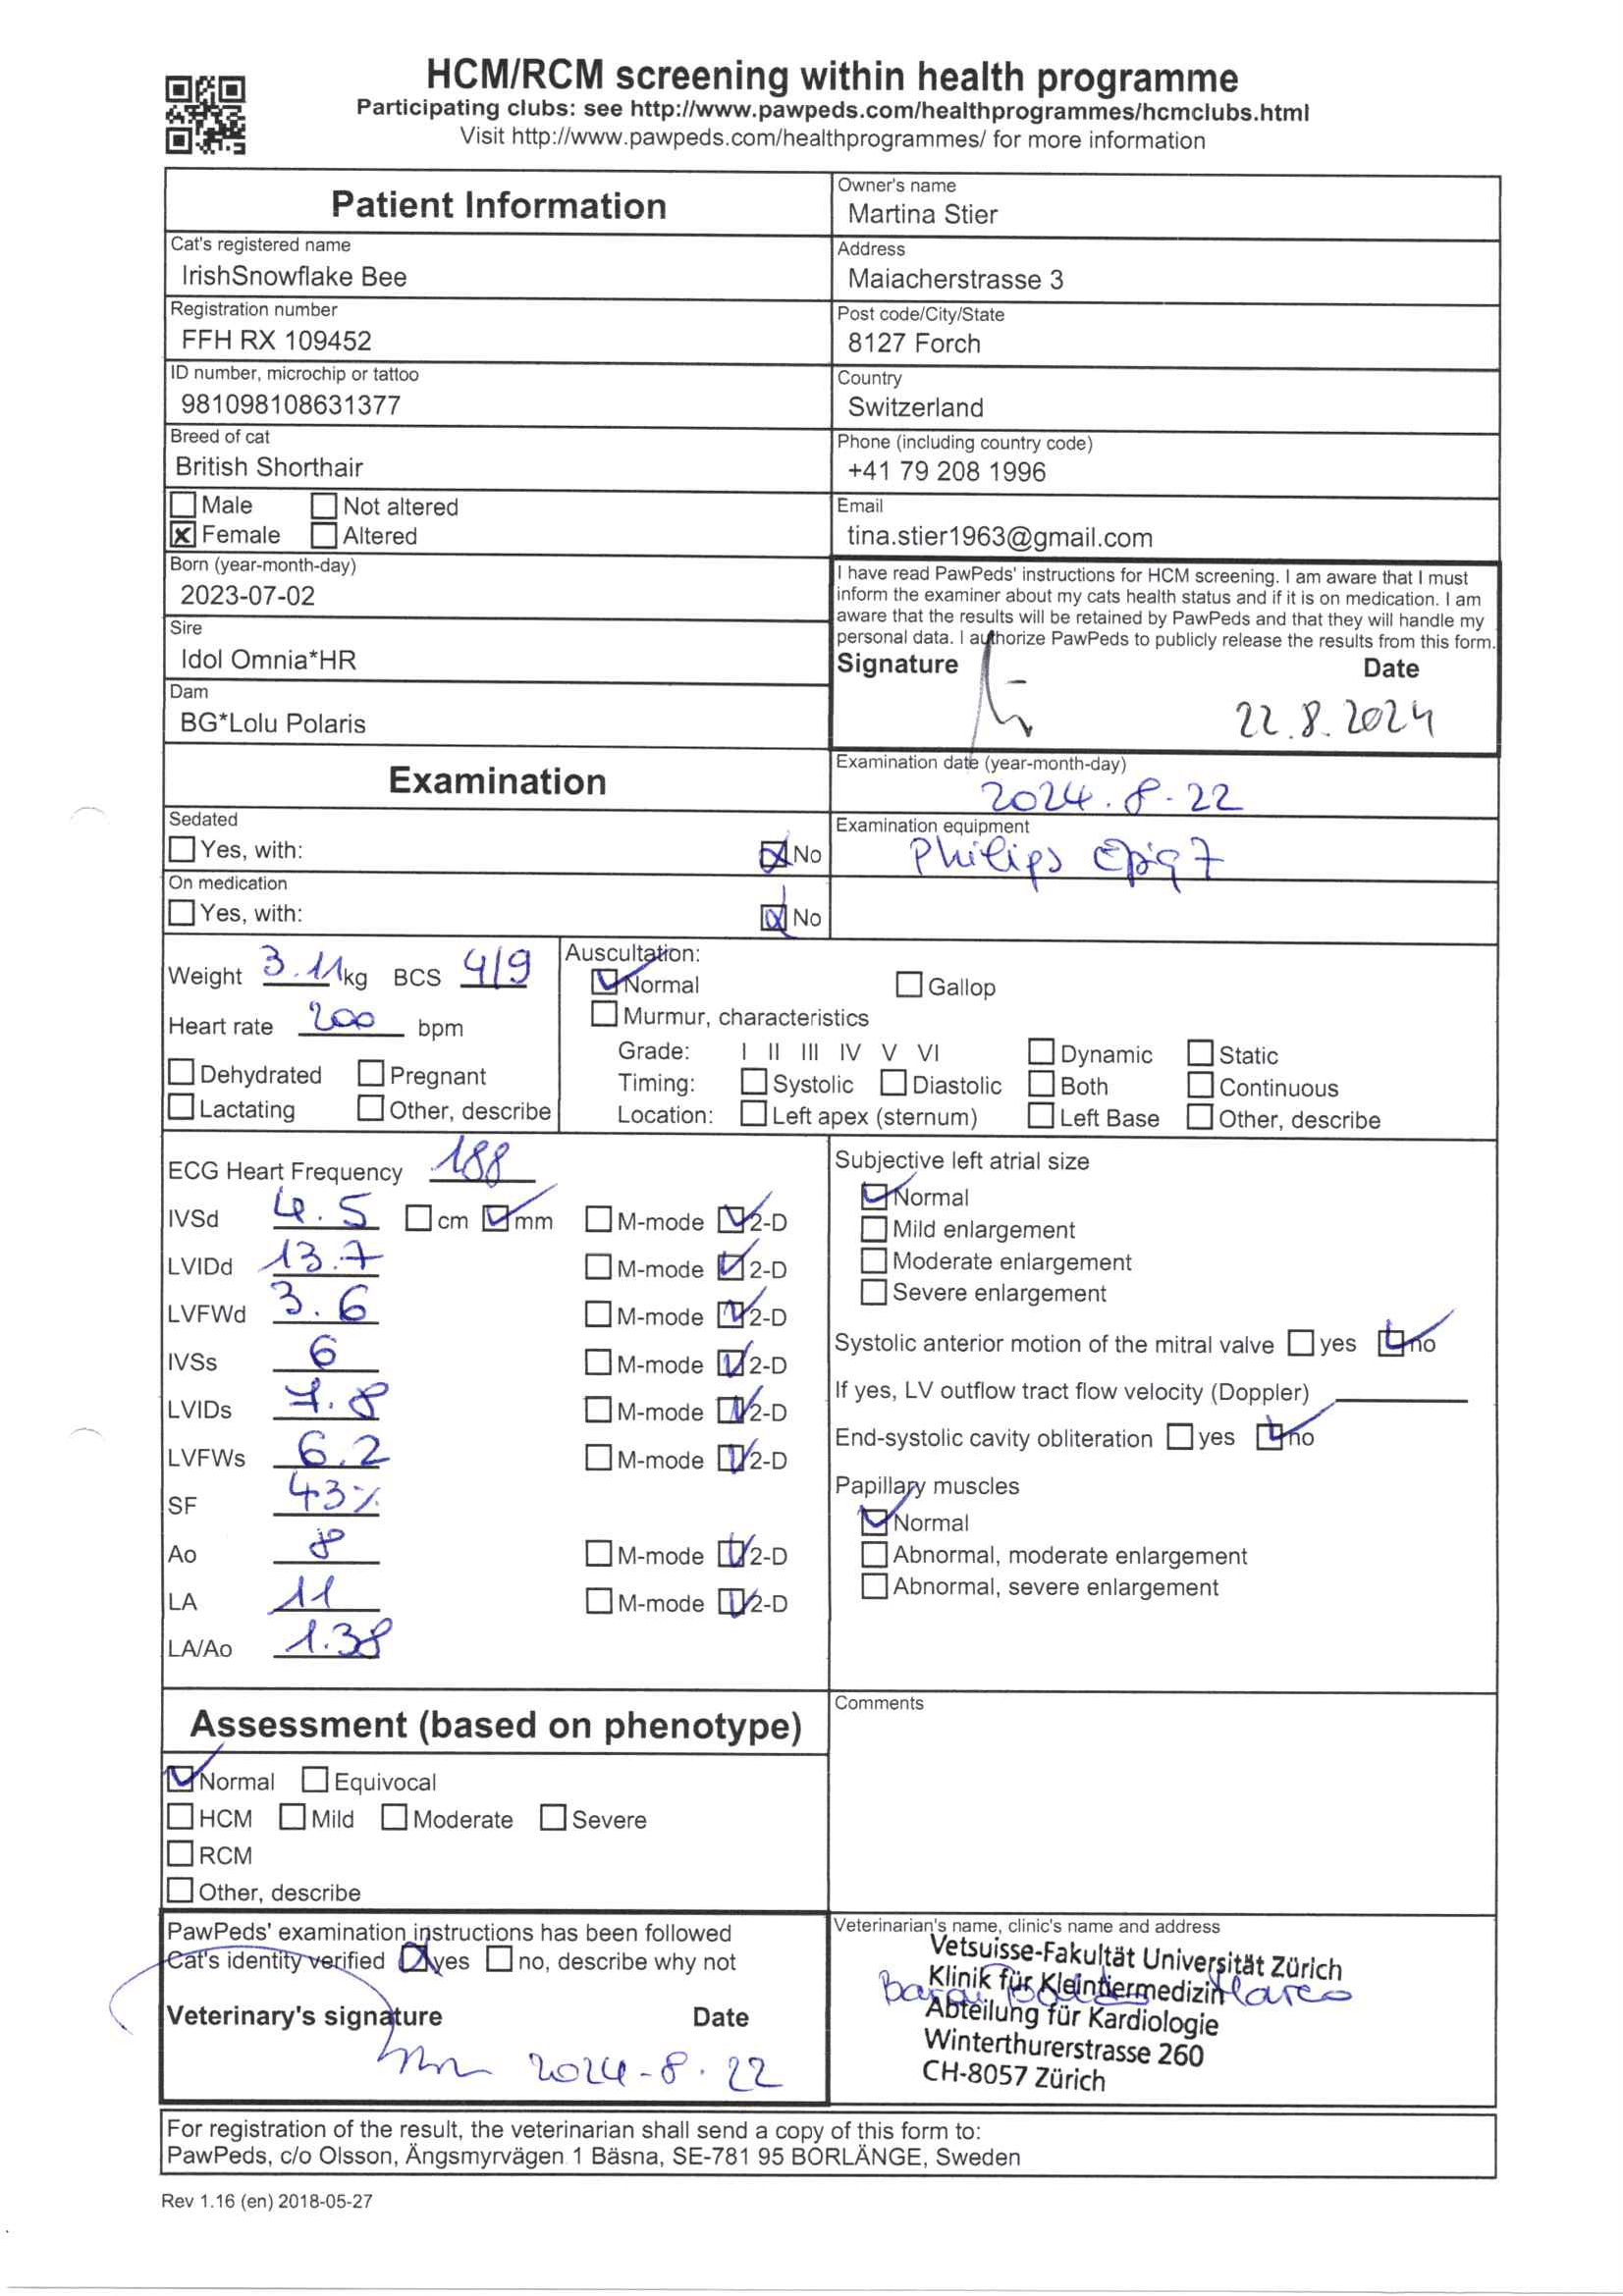 HCM/RCM screening within health programme
Participating clubs: see http://www.pawpeds.com/healthprogrammes/hcmclubs.html
Visit http://www.pawpeds.com/healthprogrammes/ for more information
Patient Information
Owner's name
Martina Stier
Cat's registered name
IrishSnowflake Bee
Address
Maiacherstrasse 3
Registration number
FFH RX 109452
Post code/City/State
8127 Forch
ID number, microchip or tattoo
981098108631377
Country
Switzerland
Breed of cat
British Shorthair
Phone (including country code)
+41 79 208 1996
Male Not altered
Female Altered
Email
tina.stier1963@gmail.com
Born (year-month-day)
2023-07-02
Sire
Idol Omnia*HR
Dam
BG*Lolu Polaris
I have read PawPeds' instructions for HCM screening. I am aware that I must
inform the examiner about my cats health status and if it is on medication. I am
aware that the results will be retained by PawPeds and that they will handle my
personal data. I authorize PawPeds to publicly release the results from this form.
Signature Date
22.8.2024
Examination
Examination date (year-month-day)
2024.8.22
Sedated
Yes, with: No
Examination equipment
Philips Epiq 7
On medication
Yes, with: No
Weight 3.11 kg BCS 4/9
Heart rate 200 bpm
Dehydrated Pregnant
Lactating Other, describe
Auscultation:
Normal Gallop
Murmur, characteristics
Grade: I II III IV V VI Dynamic Static
Timing: Systolic Diastolic Both Continuous
Location: Left apex (sternum) Left Base Other, describe
ECG Heart Frequency 188
IVSd 4.5 cm mm M-mode 2-D
LVIDd 13.7 M-mode 2-D
LVFWd 3.6 M-mode 2-D
IVSs 6 M-mode 2-D
LVIDs 7.8 M-mode 2-D
LVFWs 6.2 M-mode 2-D
SF 43%
Ao 8 M-mode 2-D
LA 11 M-mode 2-D
LA/Ao 1.38
Subjective left atrial size
Normal
Mild enlargement
Moderate enlargement
Severe enlargement
Systolic anterior motion of the mitral valve yes no
If yes, LV outflow tract flow velocity (Doppler)
End-systolic cavity obliteration yes no
Papillary muscles
Normal
Abnormal, moderate enlargement
Abnormal, severe enlargement
Assessment (based on phenotype)
Normal Equivocal
HCM Mild Moderate Severe
RCM
Other, describe
Comments
PawPeds' examination instructions has been followed
Cat's identity verified yes no, describe why not
Veterinary's signature Date
2024-8.22
Veterinarian's name, clinic's name and address
Vetsuisse-Fakultät Universität Zürich
Klinik für Kleintiermedizin
Marco
Abteilung für Kardiologie
Winterthurerstrasse 260
CH-8057 Zürich
For registration of the result, the veterinarian shall send a copy of this form to:
PawPeds, c/o Olsson, Ängsmyrvägen 1 Bäsna, SE-781 95 BORLÄNGE, Sweden
Rev 1.16 (en) 2018-05-27